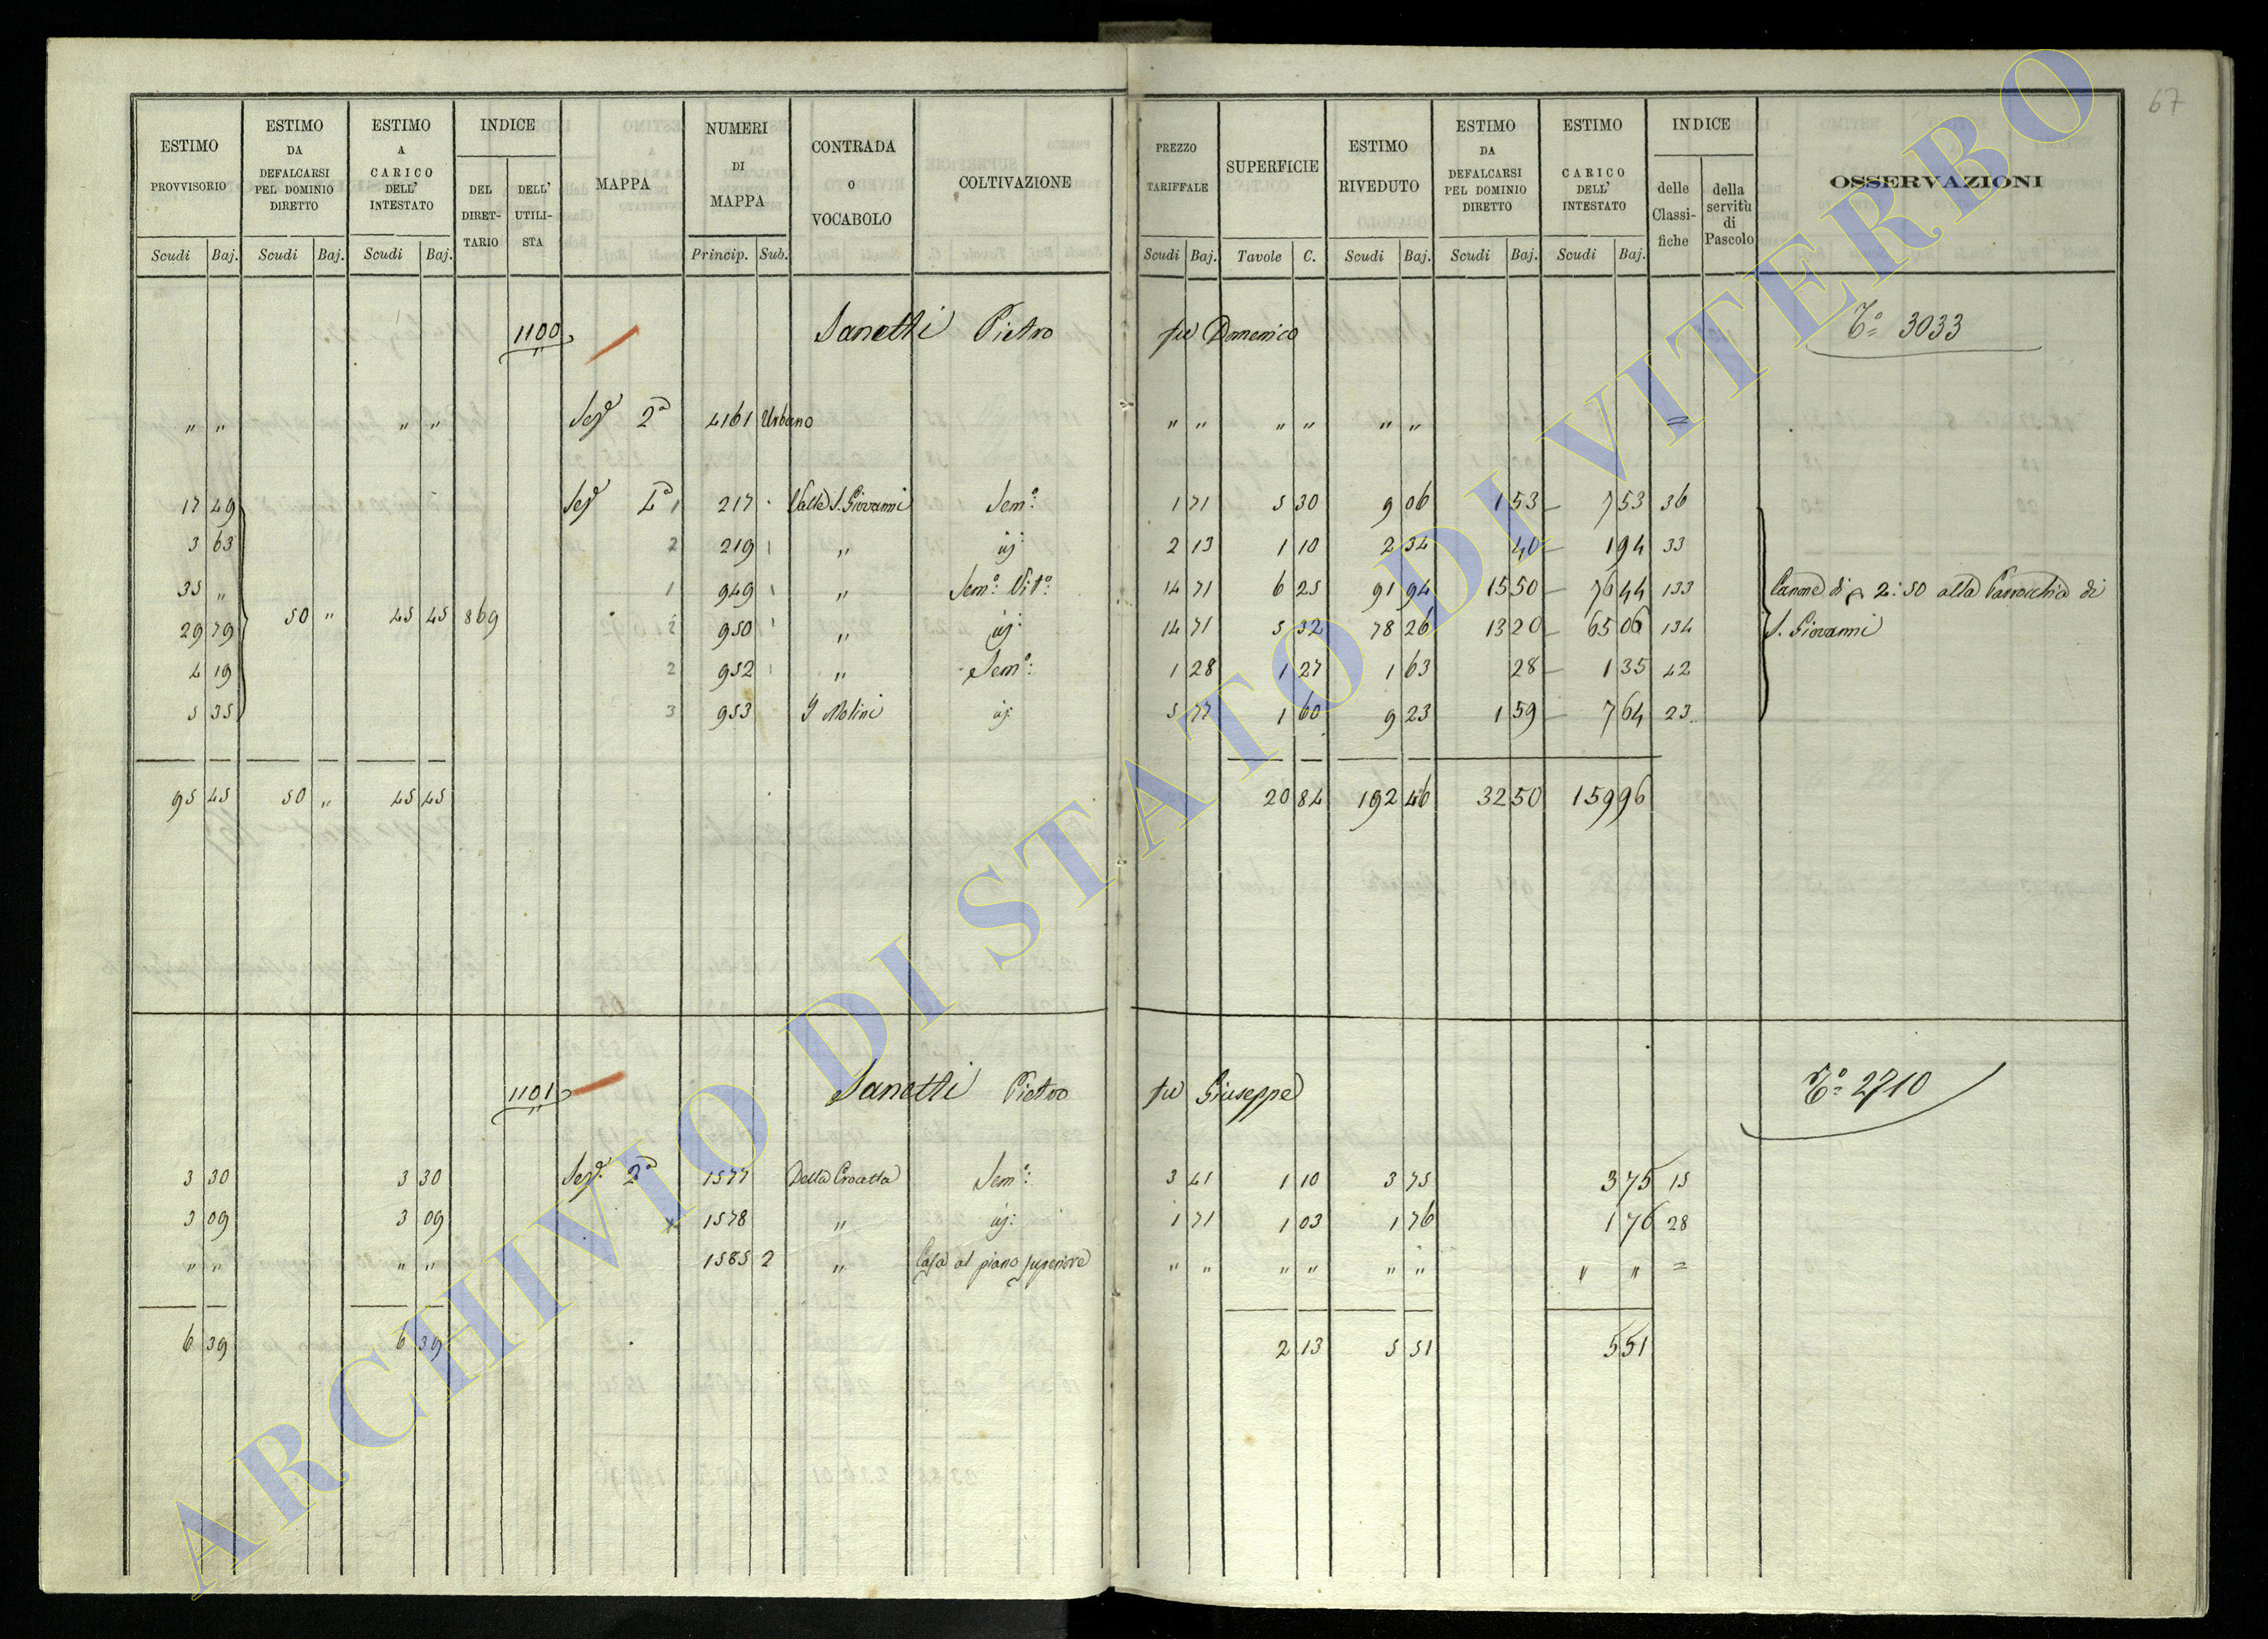 67
ESTIMO PROVVISORIO | ESTIMO DA DEFALCARSI PEL DOMINIO DIRETTO | ESTIMO A CARICO DELL' INTESTATO | INDICE DEL DIRET-TARIO | DELL' UTILI-STA | MAPPA | NUMERI DI MAPPA | CONTRADA O VOCABOLO | COLTIVAZIONE | PREZZO TARIFFALE | SUPERFICIE | ESTIMO RIVEDUTO | ESTIMO DA DEFALCARSI PEL DOMINIO DIRETTO | ESTIMO CARICO DELL' INTESTATO | INDICE delle Classi-fiche | della servitù di Pascolo | OSSERVAZIONI
Scudi Baj. Scudi Baj. Scudi Baj. Princip. Sub. Scudi Baj. Tavole C. Scudi Baj. Scudi Baj. Scudi Baj.
1100 Sanetti Pietro fu Domenico 3033
" " " " Sez.e 2a 4161 Urbano " " " " " " =
17 49 Sez.e 1 217 Valle S. Giovanni Sem.o: 1 71 5 30 9 06 1 53 7 53 36
3 63 2 219 " id: 2 13 1 10 2 34 40 1 94 33
35 " 1 949 " Sem.o: Vit.o: 14 71 6 25 91 94 15 50 76 44 133 Canone di 2:50 alla Parrocchia di
29 79 50 " 45 45 869 2 950 " id: 14 71 5 32 78 26 13 20 65 06 134 S. Giovanni
4 19 2 952 " Sem.o: 1 28 1 27 1 63 28 1 35 42
5 35 3 953 I Molini id: 5 77 1 60 9 23 1 59 7 64 23
95 45 50 " 45 45 20 84 192 46 32 50 159 96
1101 Sanetti Pietro fu Giuseppe 2710
3 30 3 30 Sez.e 2a 1577 Della Crocetta Sem.o: 3 41 1 10 3 75 3 75 15
3 09 3 09 1578 " id: 1 71 1 03 1 76 1 76 28
" " " " 1585 2 " Casa al piano superiore " " " " " " " " =
6 39 6 39 2 13 5 51 5 51
ARCHIVIO DI STATO DI VITERBO